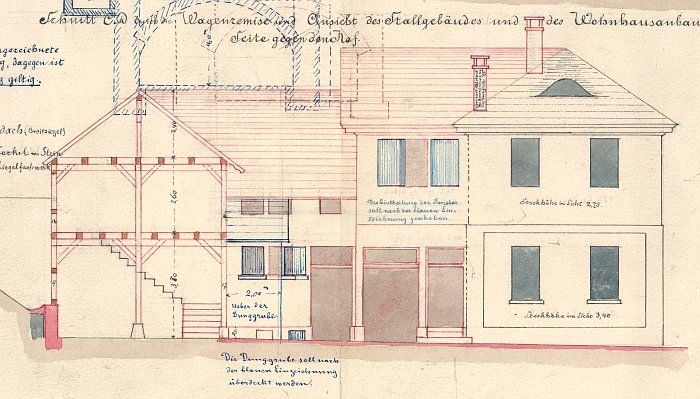 Schnitt C-D durch die Wagenremise und Ansicht des Stallgebäudes und des Wohnhausanbau
Seite gegen den Hof.
gezeichnete
dagegen ist
giltig.
dach (Breitziegel)
Sockel in Stein
Ziegelfachwerk
2,60
3,80
2,00
Ueber der
Dunggrube
Die Eintheilung der Fenster
soll nach der blauen Ein-
zeichnung geschehen.
Stockhöhe im Licht 2,70.
Stockhöhe im Licht 3,40
Die Dunggrube soll nach
der blauen Einzeichnung
überdeckt werden.